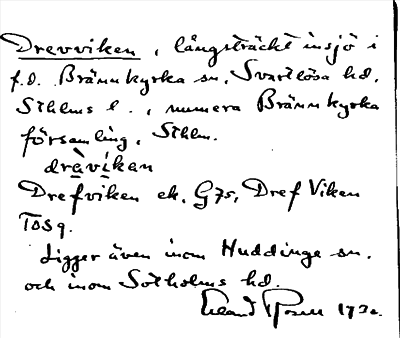 Drevviken, långsträckt insjö i
f.d. Brännkyrka sn, Svartlösa hd,
Sthlms l., numera Brännkyrka
församling, Sthlm.
drèvíkan
Drefviken ek. G75, Dref Viken
Tosg.
Ligger även inom Huddinge sn.
och inom Sotholms hd.
Erland Rosell 1930.